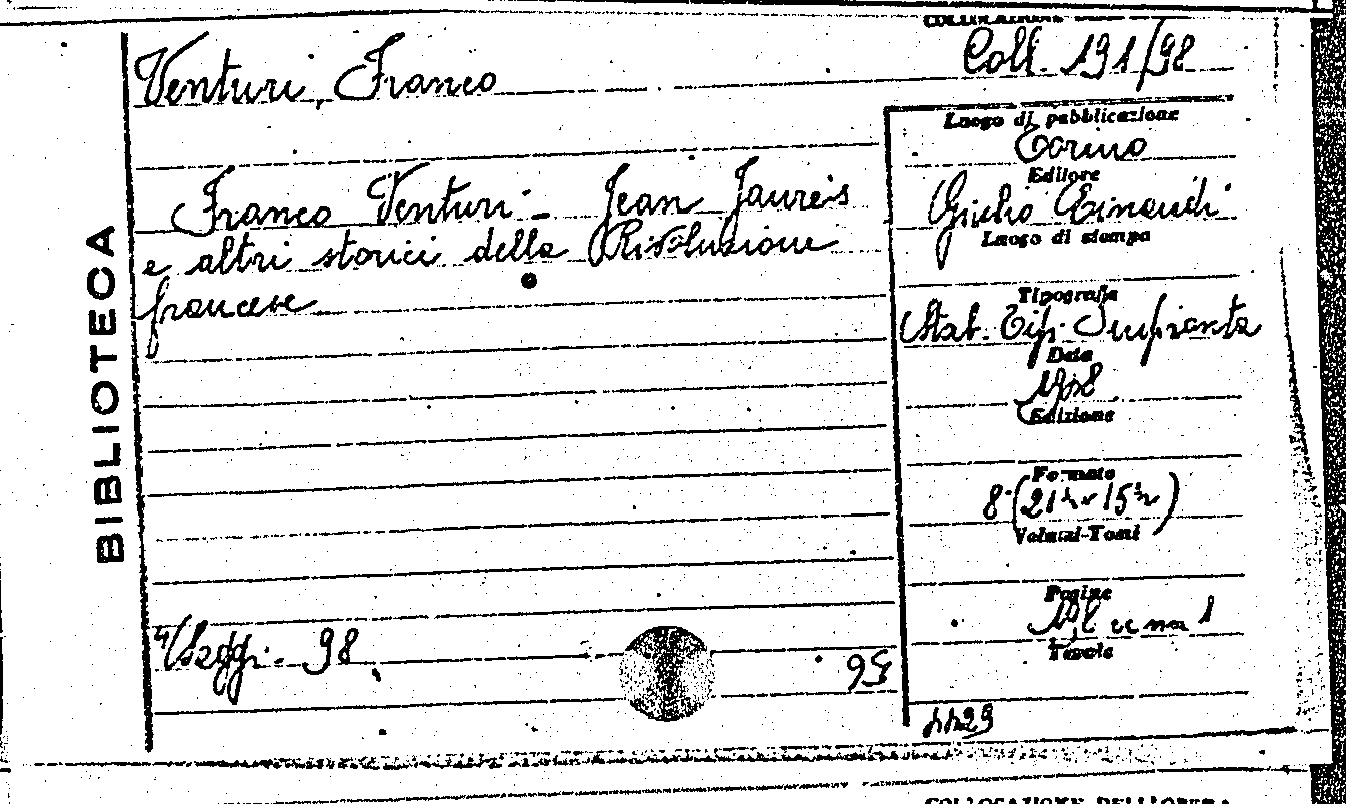 COLLOCAZIONE
Coll. 191/98
Venturi, Franco
BIBLIOTECA
Franco Venturi - Jean Jaurès
e altri storici della Rivoluzione
francese
"Saggi - 98
95
Luogo di pubblicazione
Torino
Editore
Giulio Einaudi
Luogo di stampa
Tipografia
Stab. Tip. Impronta
Data
Edizione
Formato
8° (21 ½ × 15 ½)
Volumi-Tomi
Pagine
Tavole
COLLOCAZIONE DELL'OPERA